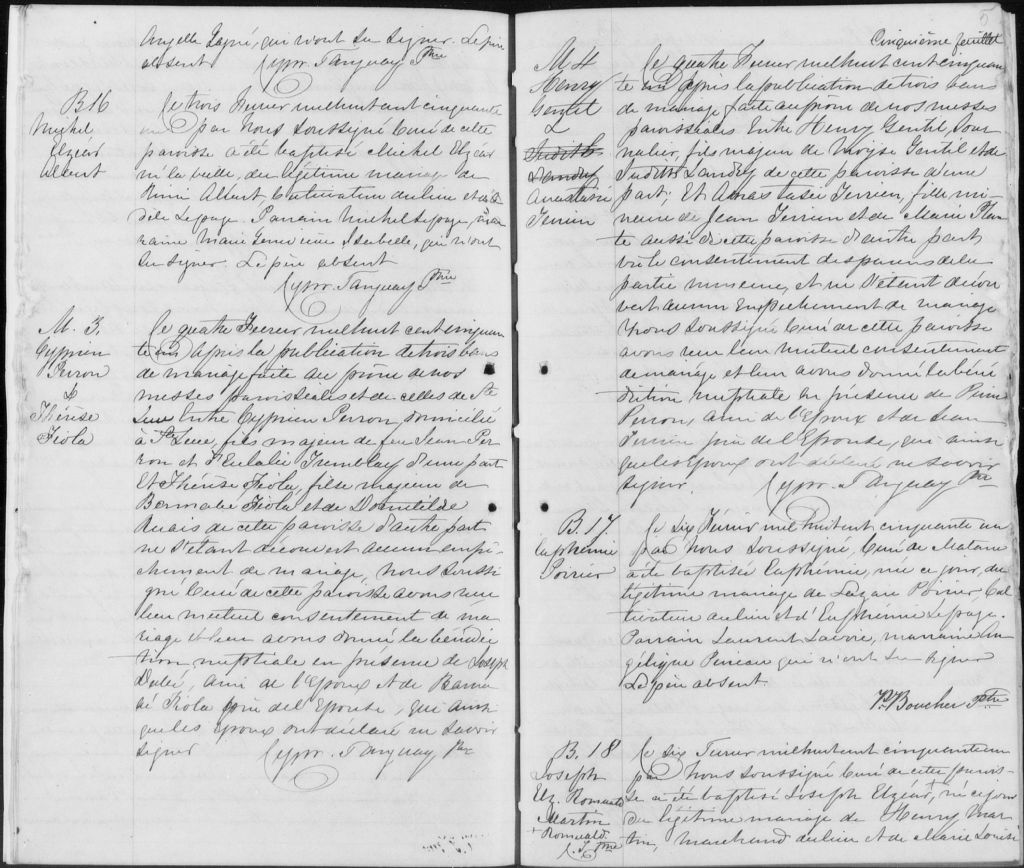 Angelle Gagné, qui n'ont su signer. Le père
absent Cypr. Tanguay Ptre
B 16
Michel
Elzéar
Albert
Le trois Fevrier mil huit cent cinquante
un par Nous Soussigné Curé de cette
paroisse a été baptisé Michel Elzéar
né la veille, du légitime mariage de
Rémi Albert, Cultivateur du lieu et d'A
dèle Lepage. Parrain Michel Lepage, mar
raine Marie Isabelle, qui n'ont
su signer. Le père absent
Cypr. Tanguay Ptre
M. 3.
Cyprien
Perron
&
Thérèse
Fiola
Le quatre Fevrier mil huit cent cinquan
te un après la publication de trois bans
de mariage faite au prône de nos
messes paroissiales et de celles de Ste
Luce Entre Cyprien Perron, domicilié
à Ste Luce, fils majeur de feu Jean Per
ron et d'Eulalie Tremblay d'une part
Et Thérèse Fiola, fille majeure de
Bernabé Fiola et de Domitilde
Ruais de cette paroisse d'autre part
ne s'étant découvert aucun empê-
chement de mariage, Nous Soussi
gné Curé de cette paroisse avons reçu
leur mutuel consentement de ma
riage et leur avons donné la bénédic
tion nuptiale en présence de Joseph
Dubé, ami de l'Epoux et de Barna
bé Fiola père de l'Epouse, qui ainsi
que les Epoux ont déclaré ne savoir
signer Cypr. Tanguay Ptre
5
Cinquième feuillet
M 4
Henry
Gentil
&
Judith
Landry
Anastasie
Terrien
Le quatre Fevrier mil huit cent cinquan
te un Après la publication de trois bans
de mariage faite au prône de nos messes
paroissiales Entre Henry Gentil, Jour
nalier, fils majeur de Moyse Gentil et de
Judith Landry de cette paroisse d'une
part; Et Anastasie Terrien, fille mi-
neure de Jean Terrien et de Marie Plan
te aussi de cette paroisse d'autre part
vu le consentement des parens de la
partie mineure, et ne s'étant décou
vert aucun Empêchement de mariage
Nous Soussigné Curé de cette paroisse
avons reçu leur mutuel consentement
de mariage et leur avons donné la béné
diction nuptiale en présence de Pierre
Perron, ami de l'Epoux et de Jean
Terrien père de l'Epouse, qui ainsi
que les Epoux ont déclaré ne savoir
signer. Cypr. Tanguay Ptre
B. 17.
Euphémie
Poirier
Le six Février mil huit cent cinquante un
par Nous Soussigné, Curé de Matane
a été baptisée Euphémie, née ce jour, du
légitime mariage de Lazare Poirier, Cul
tivateur du lieu et d'Euphémie Lepage.
Parrain Laurent Lavoie, marraine An
gélique Pineau qui n'ont su signer
Le père absent.
P. Boucher Ptre
B. 18
Joseph
Elz. Romuald
Martin
+ Romuald.
C. T. Ptre
Le six Fevrier mil huit cent cinquante un
par Nous Soussigné Curé de cette parois-
se a été baptisé Joseph Elzéar +, né ce jour
du légitime mariage de Henry Mar
tin, marchand du lieu et de Marie Louise